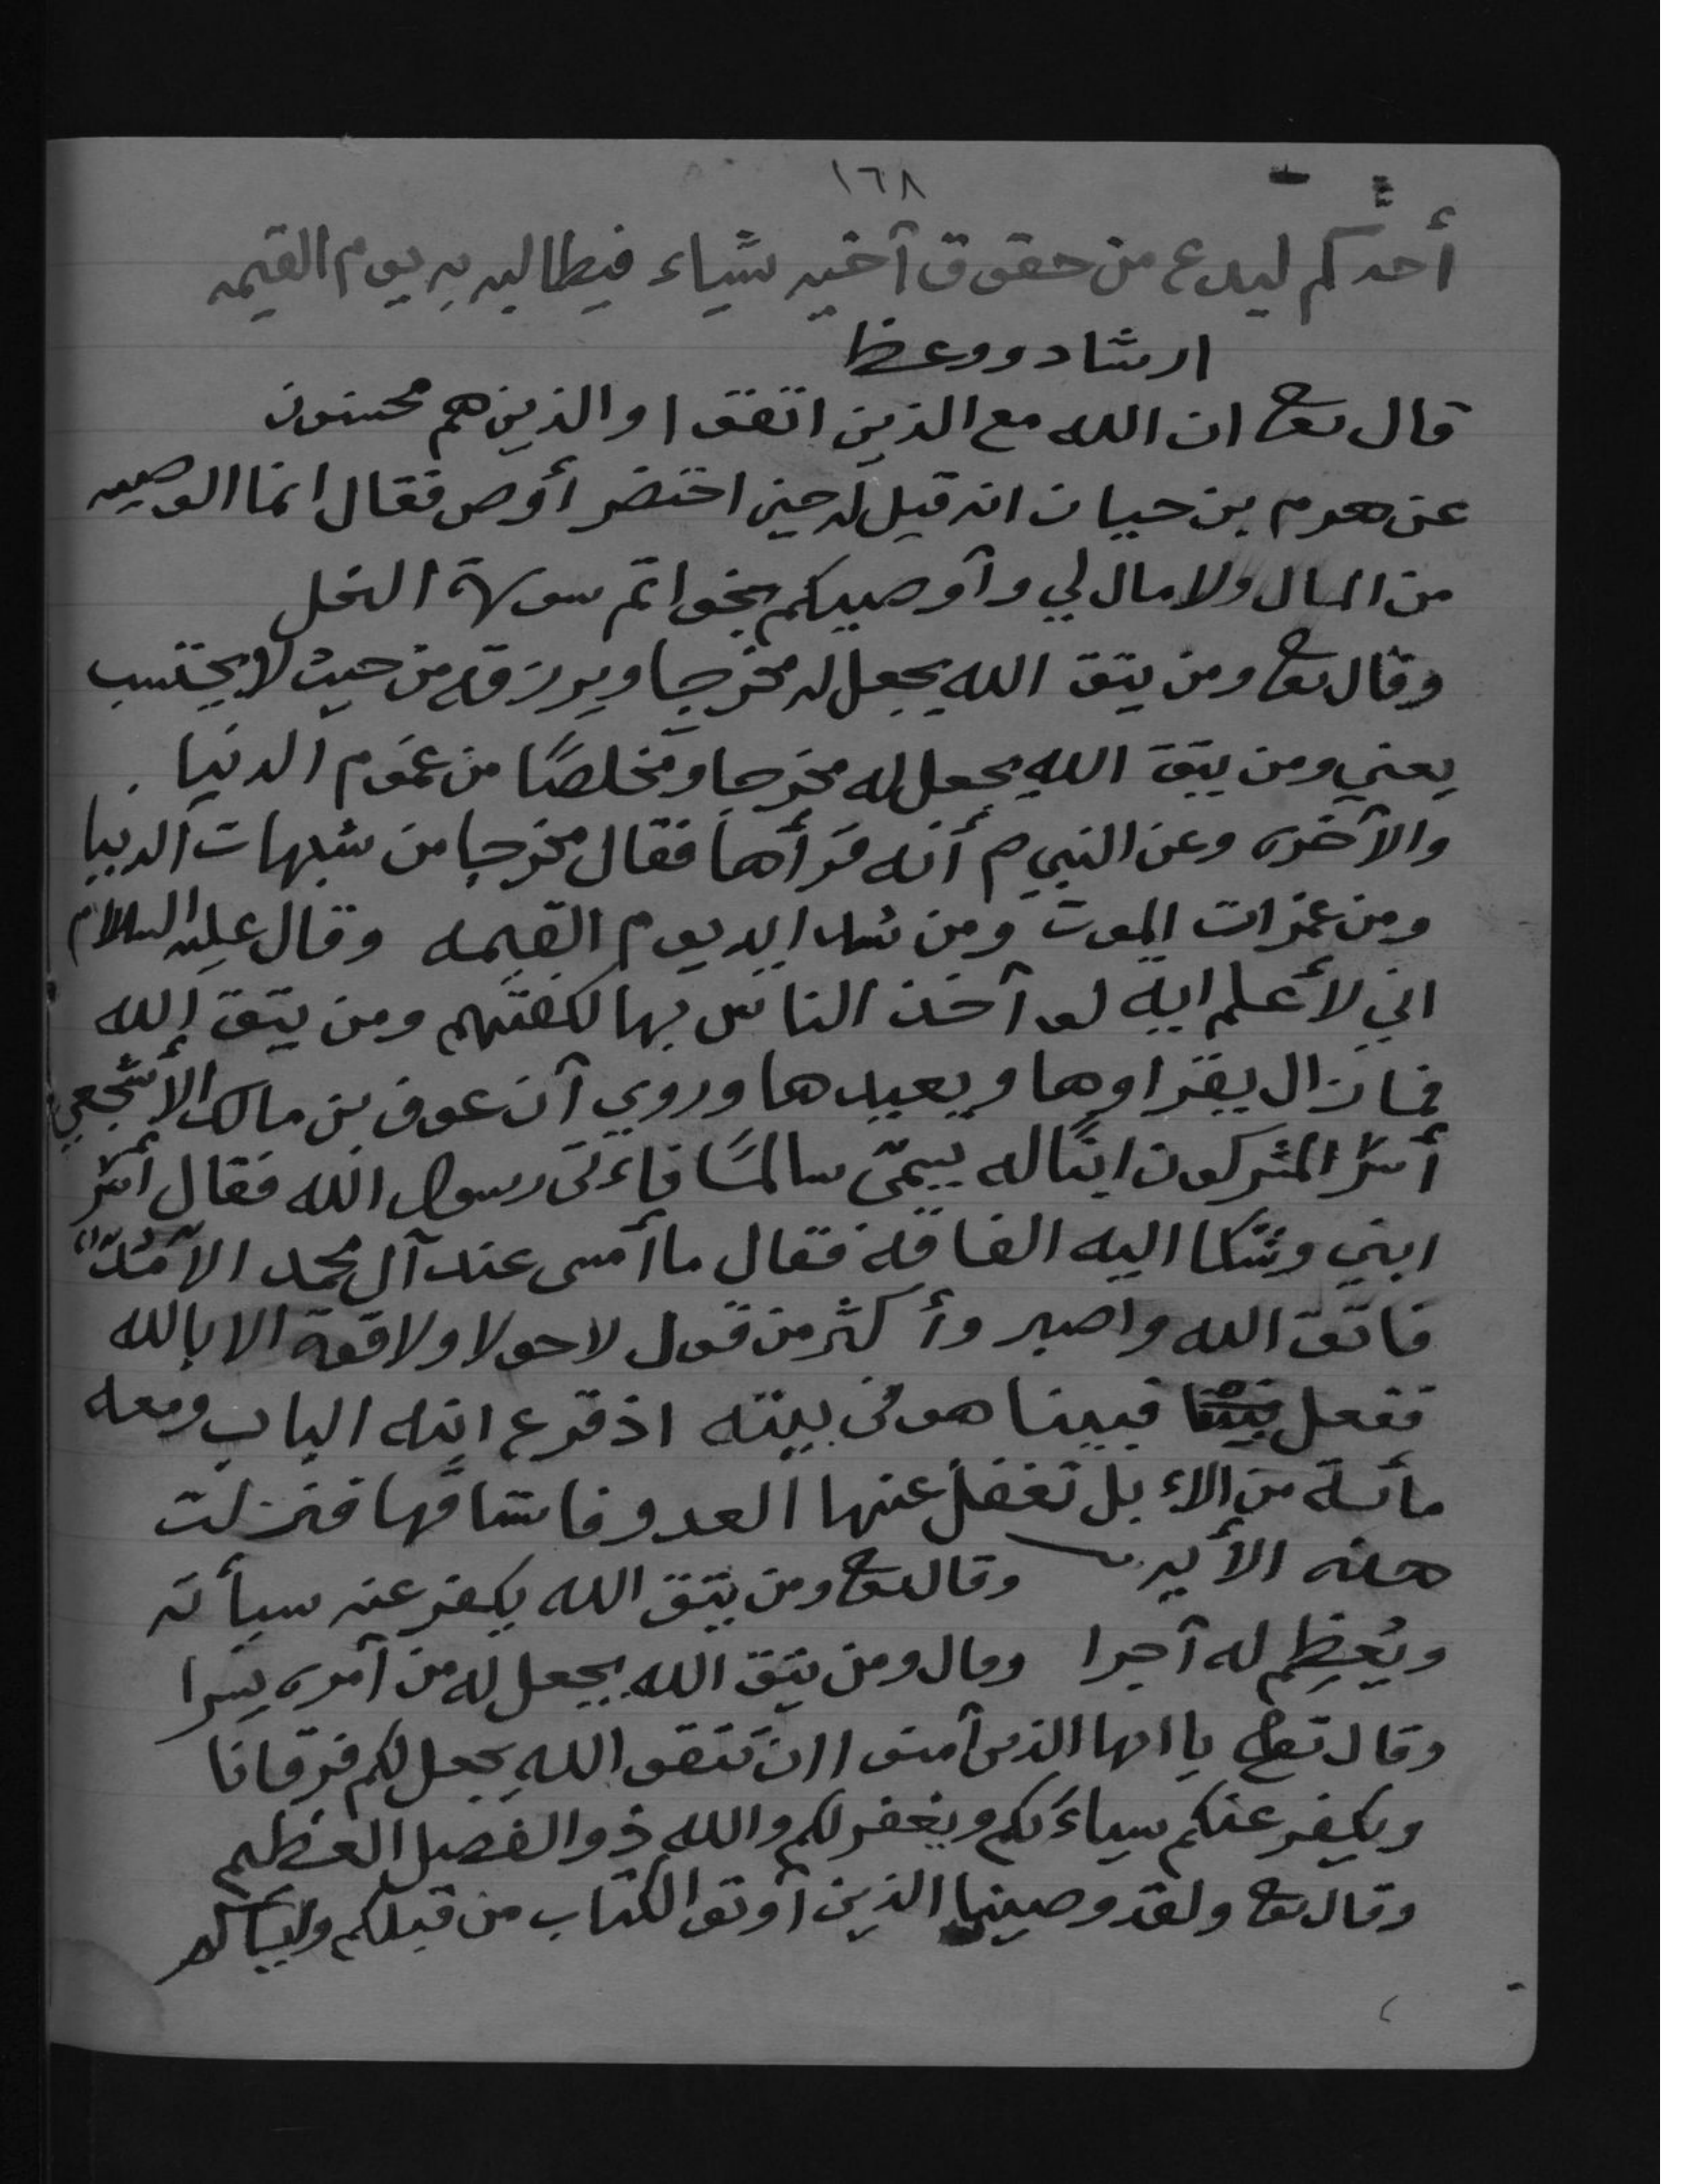 ١٦٨
أحدكم ليدع من حقوق آخيه شياء فيطالبه به يوم القيمه
ارشاد ووعظ
قال تعا ان الله مع الذين اتقوا والذين هم محسنون
عن هرم بن حيان انه قيل له حين احتضر أوص فقال انما الوصيه
من المال ولا مال لي وآوصيكم بخواتم سورة النحل
وقال تعا ومن يتق الله يجعل له مخرجا ويرزقه من حيث لا يحتسب
يعني ومن يتق الله يجعل له مخرجا ومخلصًا من غموم الدنيا
والآخره وعن النبي ص أنه قرأها فقال مخرجا من شبهات الدنيا
ومن غمرات الموت ومن شدايد يوم القيمه وقال عليه السلام
اني لأعلم ايه لو آخذ الناس بها لكفتهم ومن يتق الله
فما زال يقراوها ويعيدها وروي آن عوف بن مالك الأشجعي
أسر المشركون ابنًا له يسمّى سالمًا فاءتى رسول الله فقال أسر
ابني وشكا اليه الفاقة فقال ما أمسى عند آل محمد الا مُدّ
فاتق الله واصبر وأكثر من قول لا حولا ولا قوة الا بالله
ففعل فبينا هو في بيته اذ قرع ابنه الباب ومعه
مأئة من الاءبل تغفل عنها العدو فاستاقها فنزلت
هذه الأيه وقال تعا ومن يتق الله يكفر عنه سيأته
ويُعظِم له آجرا وقال ومن يتق الله يجعل له من آمره يسرا
وقال تعا يا ايها الذين آمنوا ان تتقو الله يجعل لكم فرقانا
ويكفر عنكم سياءتكم ويغفر لكم والله ذو الفضل العظيم
وقال تعا ولقد وصينا الذين آوتو الكتاب من قبلكم واياكم